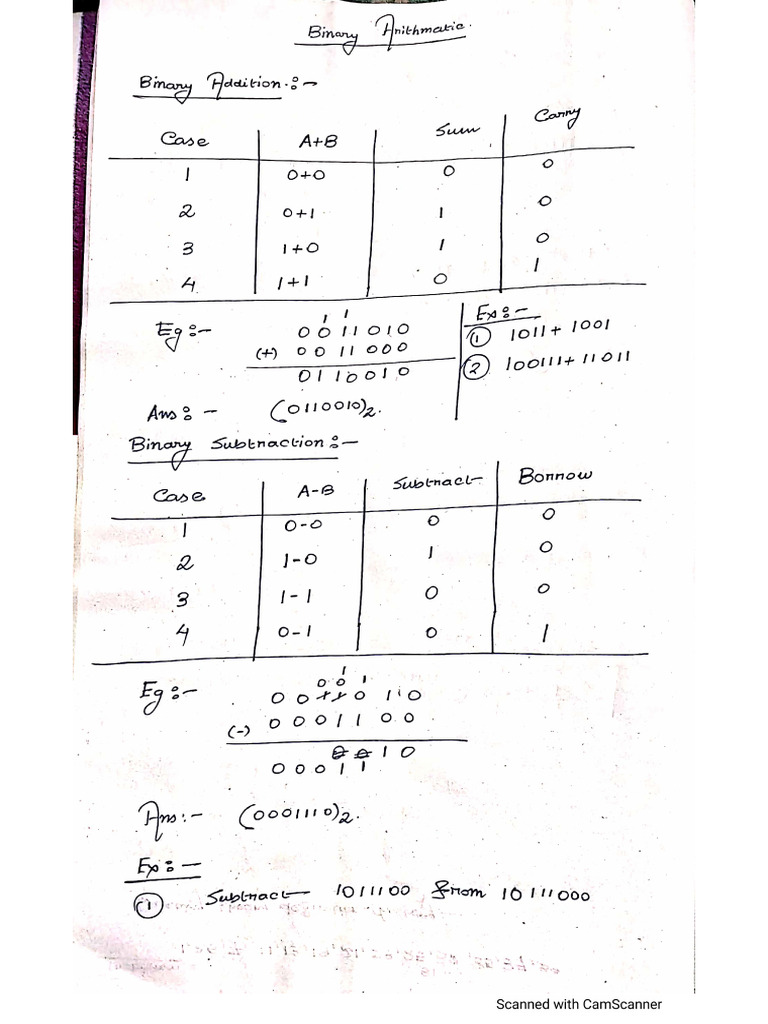 Binary Arithmatic.
Binary Addition:-
Case A+B Sum Carry
1 0+0 0 0
2 0+1 1 0
3 1+0 1 0
4 1+1 0 1
Eg:-
1 1
0 0 1 1 0 1 0
(+) 0 0 1 1 0 0 0
0 1 1 0 0 1 0
Ans:- (0110010)2.
Ex:-
① 1011 + 1001
② 100111 + 11011
Binary Subtraction:-
Case A-B Subtract Borrow
1 0-0 0 0
2 1-0 1 0
3 1-1 0 0
4 0-1 0 1
Eg:-
1
0 0 1
0 0 1 1 0 1 1 0
(-) 0 0 0 1 1 1 0 0
1 0
0 0 0 1 1
Ans:- (0001110)2.
Ex:-
① Subtract 1011100 from 10111000
Scanned with CamScanner